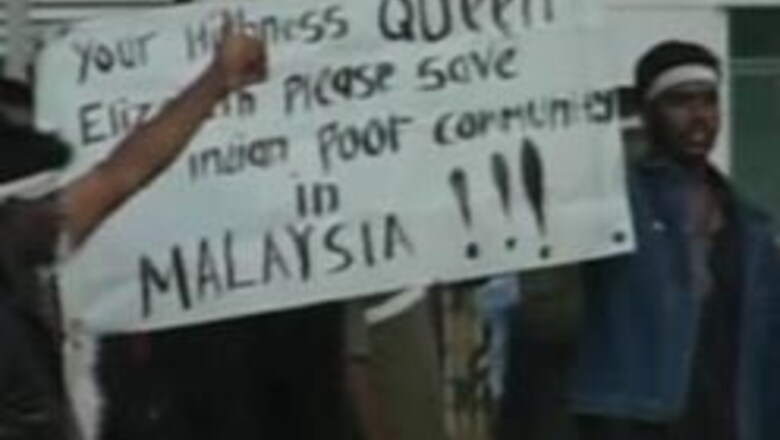 Your Highness QUEEN
Elizabeth Please save
indian Poor community
in
MALAYSIA !!!